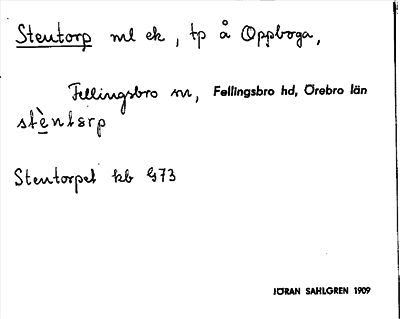 Stentorp ml ek, tp å Oppboga,
Fellingsbro sn, Fellingsbro hd, Örebro län
stèntɛrp
Stentorpet kb G73
JÖRAN SAHLGREN 1909